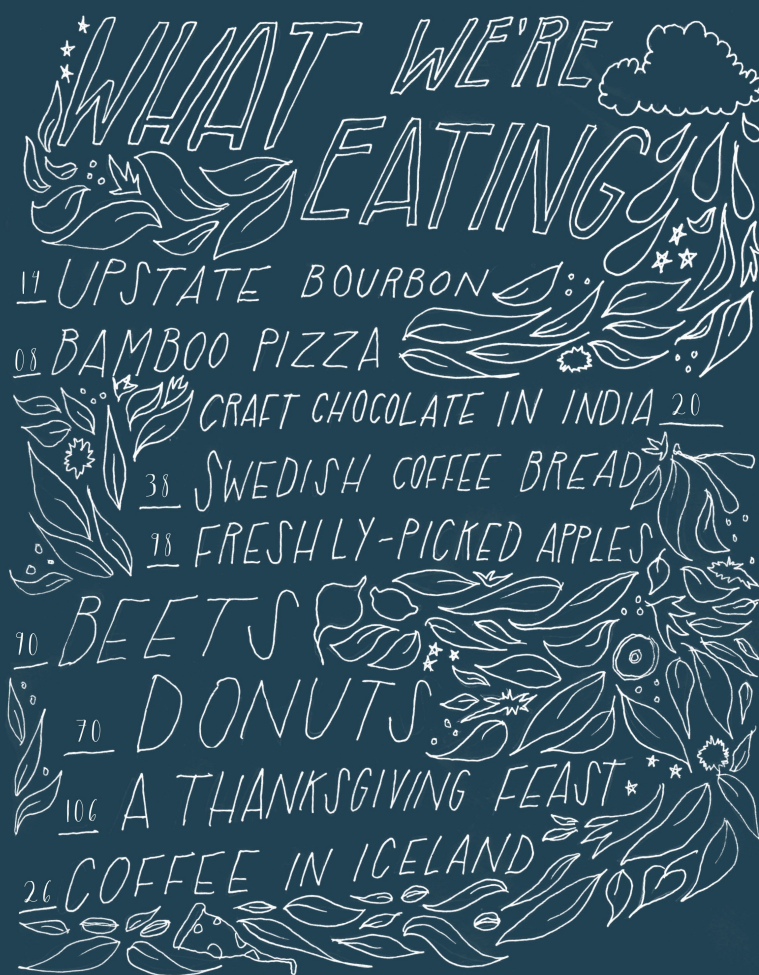 WHAT WE'RE
EATING
14 UPSTATE BOURBON
08 BAMBOO PIZZA
CRAFT CHOCOLATE IN INDIA 20
38 SWEDISH COFFEE BREAD
98 FRESHLY-PICKED APPLES
90 BEETS
70 DONUTS
106 A THANKSGIVING FEAST
26 COFFEE IN ICELAND